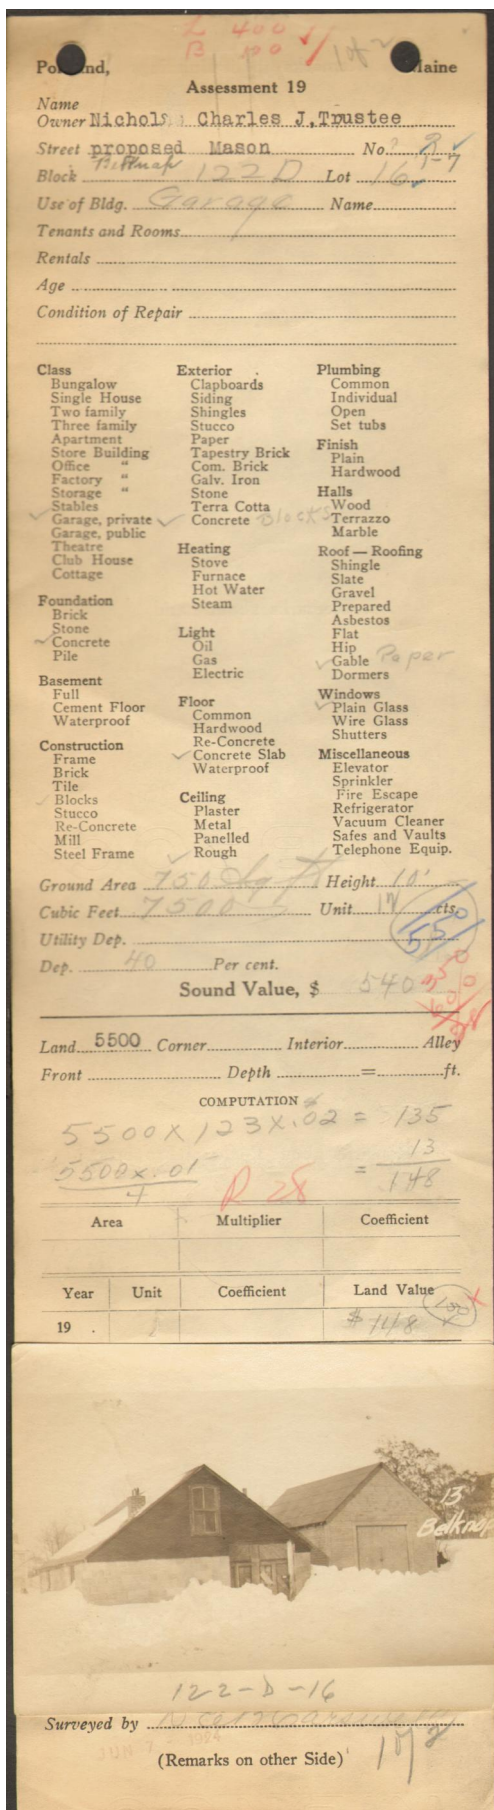 L 400
B 100
1 of 2
Portland, Maine
Assessment 19
Name
Owner Nichols, Charles J, Trustee
Street proposed Mason No.
Belknap 1-7
Block 122 D Lot 16
Use of Bldg. Garage Name
Tenants and Rooms
Rentals
Age
Condition of Repair
Class
Bungalow
Single House
Two family
Three family
Apartment
Store Building
Office "
Factory "
Storage "
Stables
Garage, private
Garage, public
Theatre
Club House
Cottage
Foundation
Brick
Stone
Concrete
Pile
Basement
Full
Cement Floor
Waterproof
Construction
Frame
Brick
Tile
Blocks
Stucco
Re-Concrete
Mill
Steel Frame
Exterior
Clapboards
Siding
Shingles
Stucco
Paper
Tapestry Brick
Com. Brick
Galv. Iron
Stone
Terra Cotta
Concrete Blocks
Heating
Stove
Furnace
Hot Water
Steam
Light
Oil
Gas
Electric
Floor
Common
Hardwood
Re-Concrete
Concrete Slab
Waterproof
Ceiling
Plaster
Metal
Panelled
Rough
Plumbing
Common
Individual
Open
Set tubs
Finish
Plain
Hardwood
Halls
Wood
Terrazzo
Marble
Roof — Roofing
Shingle
Slate
Gravel
Prepared
Asbestos
Flat
Hip
Gable Paper
Dormers
Windows
Plain Glass
Wire Glass
Shutters
Miscellaneous
Elevator
Sprinkler
Fire Escape
Refrigerator
Vacuum Cleaner
Safes and Vaults
Telephone Equip.
Ground Area 750 Sq Ft Height 10'
Cubic Feet 7500 Unit 12 cts.
550
Utility Dep.
Dep. 40 Per cent.
Sound Value, $ 540
Land 5500 Corner Interior Alley
Front Depth = ft.
COMPUTATION
5500 X 123 X .02 = 135
5500 x .01 = 13
4 148
R 28
Area Multiplier Coefficient
Year Unit Coefficient Land Value
150
19 . $ 148
13
Belknap
122-D-16
Surveyed by
JUN 7 - 1924
(Remarks on other Side)